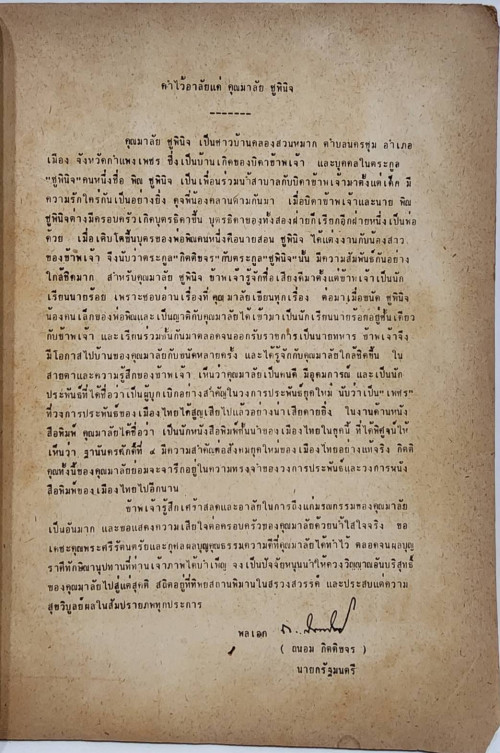 คำไว้อาลัยแด่ คุณมาลัย ชูพินิจ
-------
คุณมาลัย ชูพินิจ เป็นชาวบ้านคลองสวนหมาก ตำบลนครชุม อำเภอ
เมือง จังหวัดกำแพงเพชร ซึ่งเป็นบ้านเกิดของบิดาข้าพเจ้า และบุคคลในตระกูล
"ชูพินิจ"คนหนึ่งชื่อ พิณ ชูพินิจ เป็นเพื่อนร่วมน้ำสาบาลกับบิดาข้าพเจ้ามาตั้งแต่เด็ก มี
ความรักใคร่กันเป็นอย่างยิ่ง ดุจพี่น้องคลานตามกันมา เมื่อบิดาข้าพเจ้าและนาย พิณ
ชูพินิจต่างมีครอบครัวเกิดบุตรธิดาขึ้น บุตรธิดาของทั้งสองฝ่ายก็เรียกอีกฝ่ายหนึ่งเป็นพ่อ
ด้วย เมื่อเติบโตขึ้นบุตรของพ่อพิณคนหนึ่งคือนายสอน ชูพินิจ ได้แต่งงานกับน้องสาว
ของข้าพเจ้า จึงนับว่าตระกูล"กิตติขจร"กับตระกูล"ชูพินิจ"นั้น มีความสัมพันธ์กันอย่าง
ใกล้ชิดมาก สำหรับคุณมาลัย ชูพินิจ ข้าพเจ้ารู้จักชื่อเสียงดีมาตั้งแต่ข้าพเจ้าเป็นนัก
เรียนนายร้อย เพราะชอบอ่านเรื่องที่ คุณมาลัยเขียนทุกเรื่อง ต่อมาเมื่อขนัด ชูพินิจ
น้องคนเล็กของพ่อพิณและเป็นญาติกับคุณมาลัยได้เข้ามาเป็นนักเรียนนายร้อยอยู่ชั้นเดียว
กับข้าพเจ้า และเรียนร่วมชั้นกันมาตลอดจนออกรับราชการเป็นนายทหาร ข้าพเจ้าจึง
มีโอกาสไปบ้านของคุณมาลัยกับขนัดหลายครั้ง และได้รู้จักกับคุณมาลัยใกล้ชิดขึ้น ใน
สายตาและความรู้สึกของข้าพเจ้า เห็นว่าคุณมาลัยเป็นคนดี มีอุดมการณ์ และเป็นนัก
ประพันธ์ที่ได้ชื่อว่าเป็นผู้บุกเบิกอย่างสำคัญในวงการประพันธ์ยุคใหม่ นับว่าเป็น" เพชร"
ที่วงการประพันธ์ของเมืองไทยได้สูญเสียไปแล้วอย่างน่าเสียดายยิ่ง ในงานด้านหนัง
สือพิมพ์ คุณมาลัยได้ชื่อว่า เป็นนักหนังสือพิมพ์ชั้นนำของเมืองไทยในยุคนี้ ที่ได้พิศูจน์ให้
เห็นว่า ฐานันดรศักดิ์ที่ ๔ มีความสำคัญต่อสังคมยุคใหม่ของเมืองไทยอย่างแท้จริง กิตติ
คุณทั้งนี้ของคุณมาลัยย่อมจะจารึกอยู่ในความทรงจำของวงการประพันธ์และวงการหนัง
สือพิมพ์ของเมืองไทยไปอีกนาน
ข้าพเจ้ารู้สึกเศร้าสลดและอาลัยในการถึงแก่มรณกรรมของคุณมาลัย
เป็นอันมาก และขอแสดงความเสียใจต่อครอบครัวของคุณมาลัยด้วยน้ำใสใจจริง ขอ
เดชะคุณพระศรีรัตนตรัยและกุศลผลบุญคุณธรรมความดีที่คุณมาลัยได้ทำไว้ ตลอดจนผลบุญ
ราศีทักษิณานุปทานที่ท่านเจ้าภาพได้บำเพ็ญ จงเป็นปัจจัยหนุนนำให้ดวงวิญญาณอันบริสุทธิ์
ของคุณมาลัยไปสู่แต่สุคติ สถิตอยู่ที่ทิพยสถานพิมานในสรวงสวรรค์ และประสบแต่ความ
สุขวิบูลย์ผลในสัมปรายภพทุกประการ
พลเอก
( ถนอม กิตติขจร )
นายกรัฐมนตรี